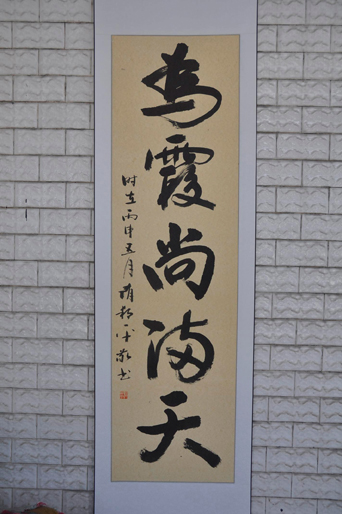 為霞尚满天
时在丙申五月 敬书